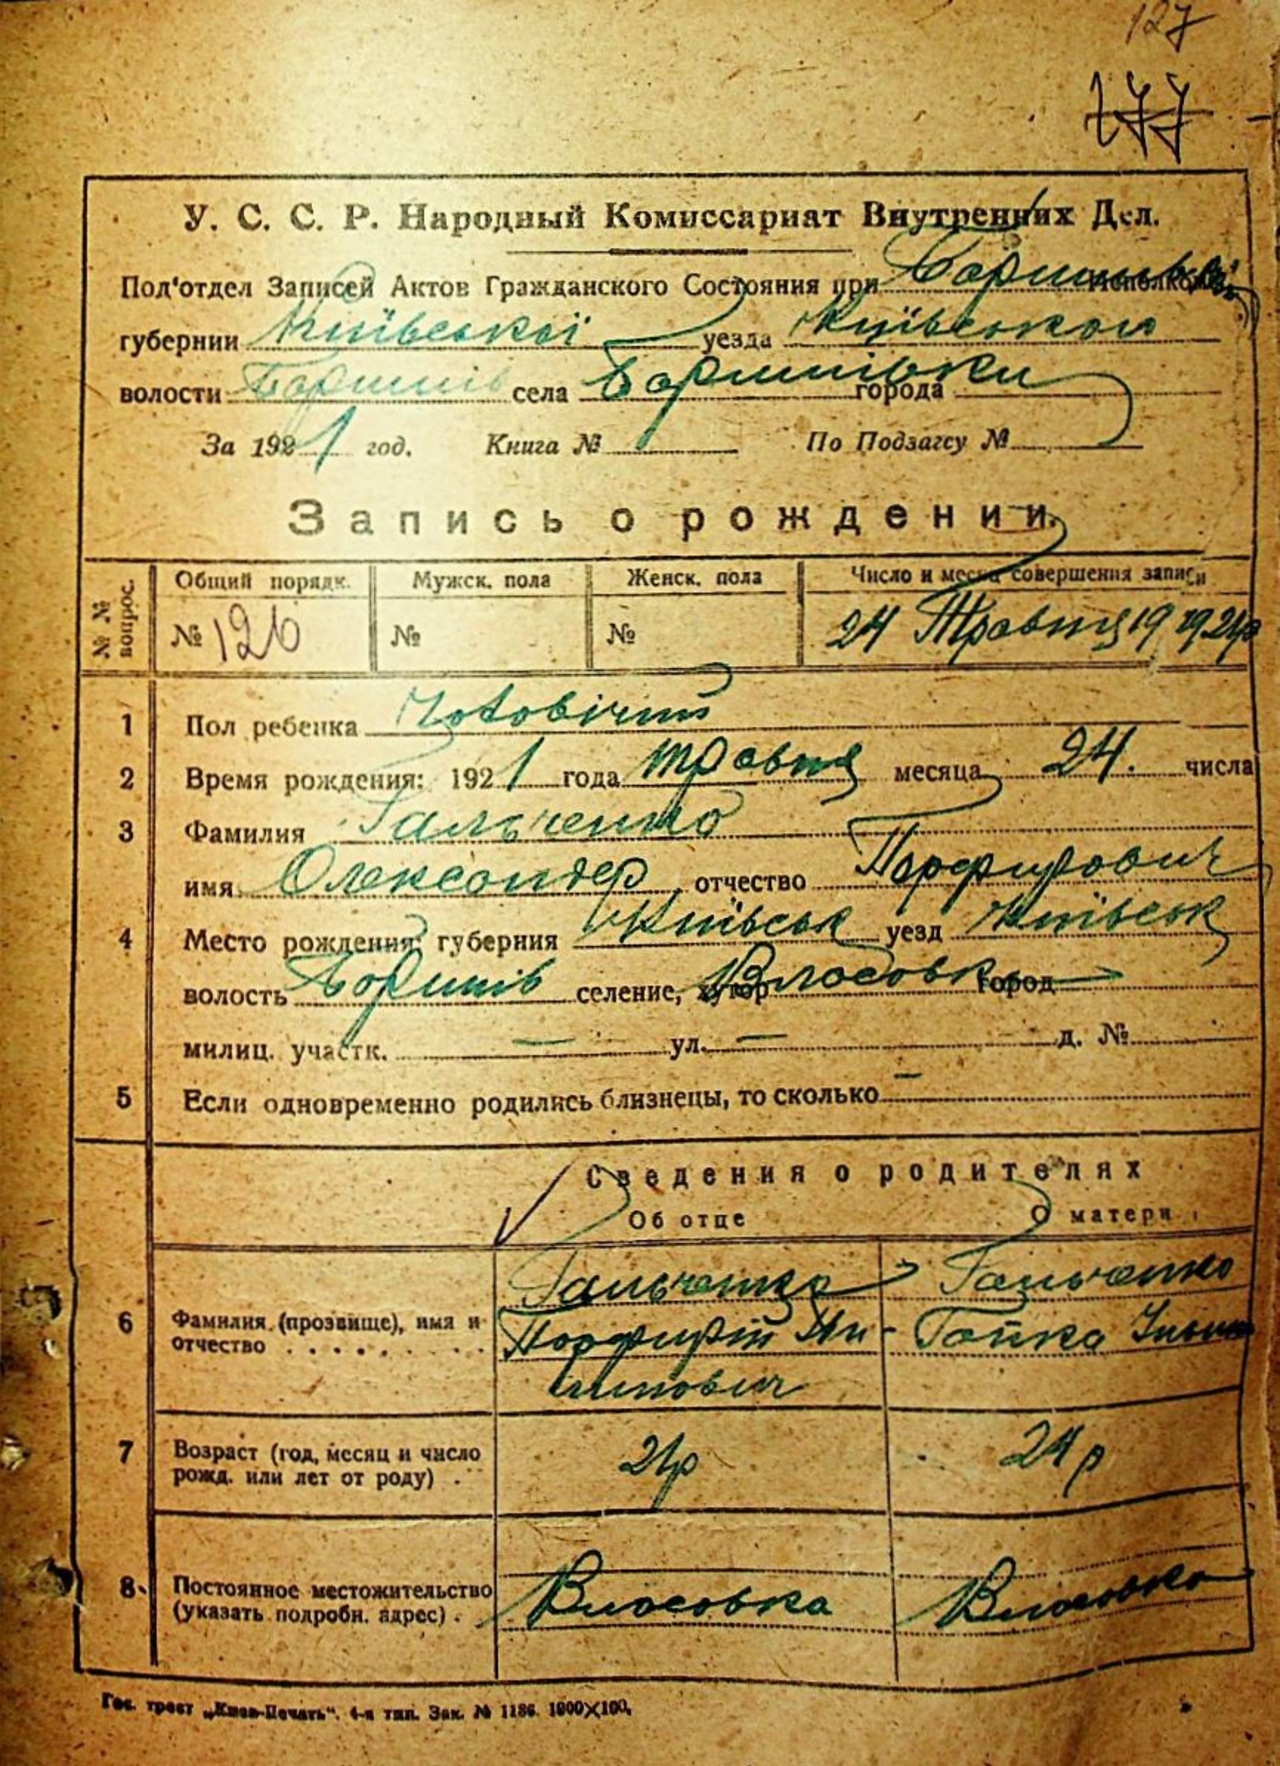 127
177
У. С. С. Р. Народный Комиссариат Внутренних Дел.
Под'отдел Записей Актов Гражданского Состояния при Исполком
губернии Київської уезда Київського
волости Боришп села Бориспілки города
За 1921 год. Книга № По Подзагсу №
Запись о рождении.
№ № вопрос. Общий порядк. Мужск. пола Женск. пола Число и место совершения записи
№ 126 № № 24 Травня 1921р
1 Пол ребенка Чоловічий
2 Время рождения: 1921 года травня месяца 24. числа
3 Фамилия Гальченко
имя Олександер отчество Порфирович
4 Место рождения: губерния Київськ уезд Київськ
волость селение, хутор Власовка город
милиц. участк. — ул. — д. №
5 Если одновременно родились близнецы, то сколько —
Сведения о родителях
Об отце О матери
6 Фамилия (прозвище), имя и отчество Гальченко Гальченко
Порфирій Пи- Гапка
липович
7 Возраст (год, месяц и число рожд. или лет от роду) 21р 24р
8 Постоянное местожительство (указать подробн. адрес) Власовка Власовка
Гос. трест „Киев-Печать“. 4-я тип. Зак. № 1186. 1000×100.